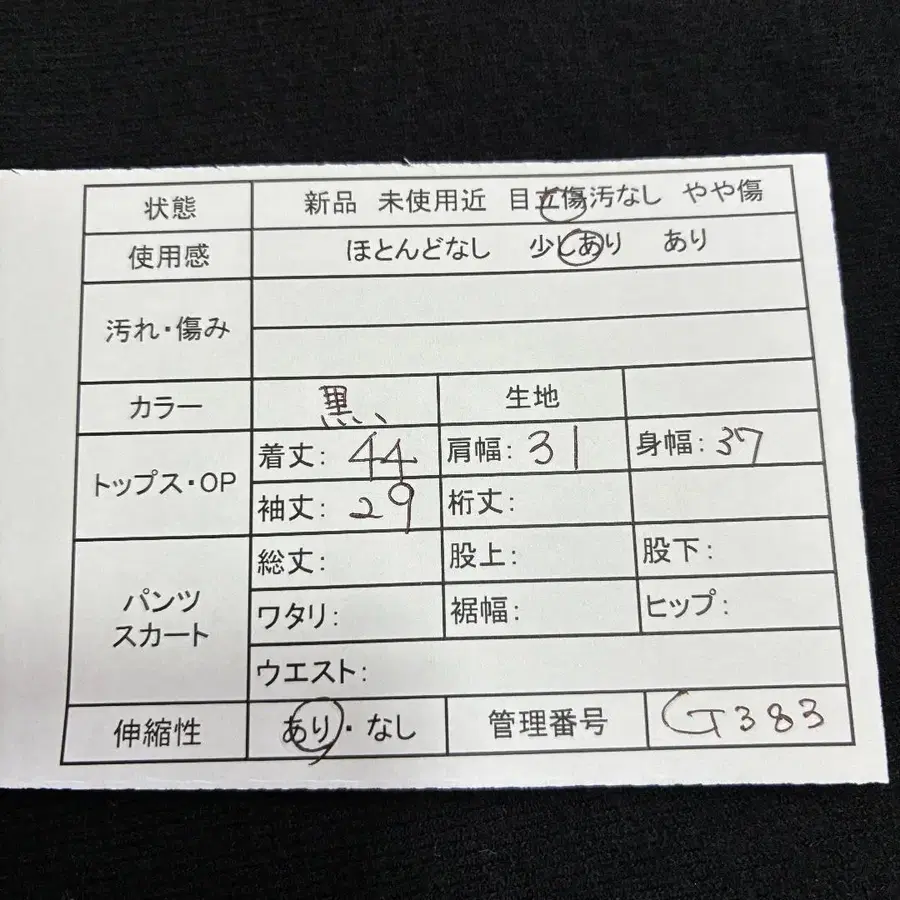 状態 新品 未使用近 目立傷汚なし やや傷
使用感 ほとんどなし 少しあり あり
汚れ・傷み
カラー 黒 生地
トップス・OP 着丈: 44 肩幅: 31 身幅: 37
袖丈: 29 裄丈:
パンツ スカート 総丈: 股上: 股下:
ワタリ: 裾幅: ヒップ:
ウエスト:
伸縮性 あり・なし 管理番号 G383